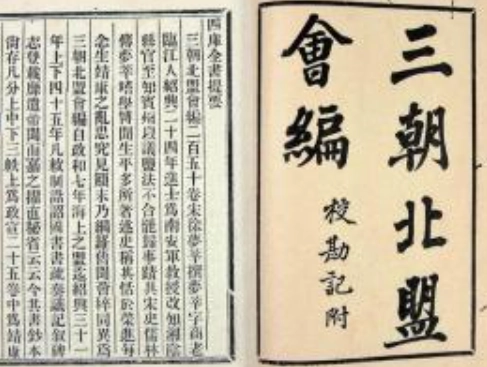 三朝北盟
會編
校勘記附
四庫全書提要
三朝北盟會編二百五十卷宋徐夢莘撰夢莘字商老
臨江人紹興二十四年進士爲南安軍教授改知湘陰
縣官至知賓州以議鹽法不合罷歸事蹟具宋史儒林
傳夢莘嗜學博聞生平多所著述史稱其恬於榮進每
念生靖康之亂思究見顛末乃網羅舊聞薈稡同異爲
三朝北盟會編自政和七年海上之盟迄紹興三十一
年上下四十五年凡敕制誥詔國書書疏奏議記敘碑
志登載靡遺帝聞而嘉之擢直秘省云云今其書鈔本
尙存凡分上中下三帙上爲政宣二十五卷中爲靖康